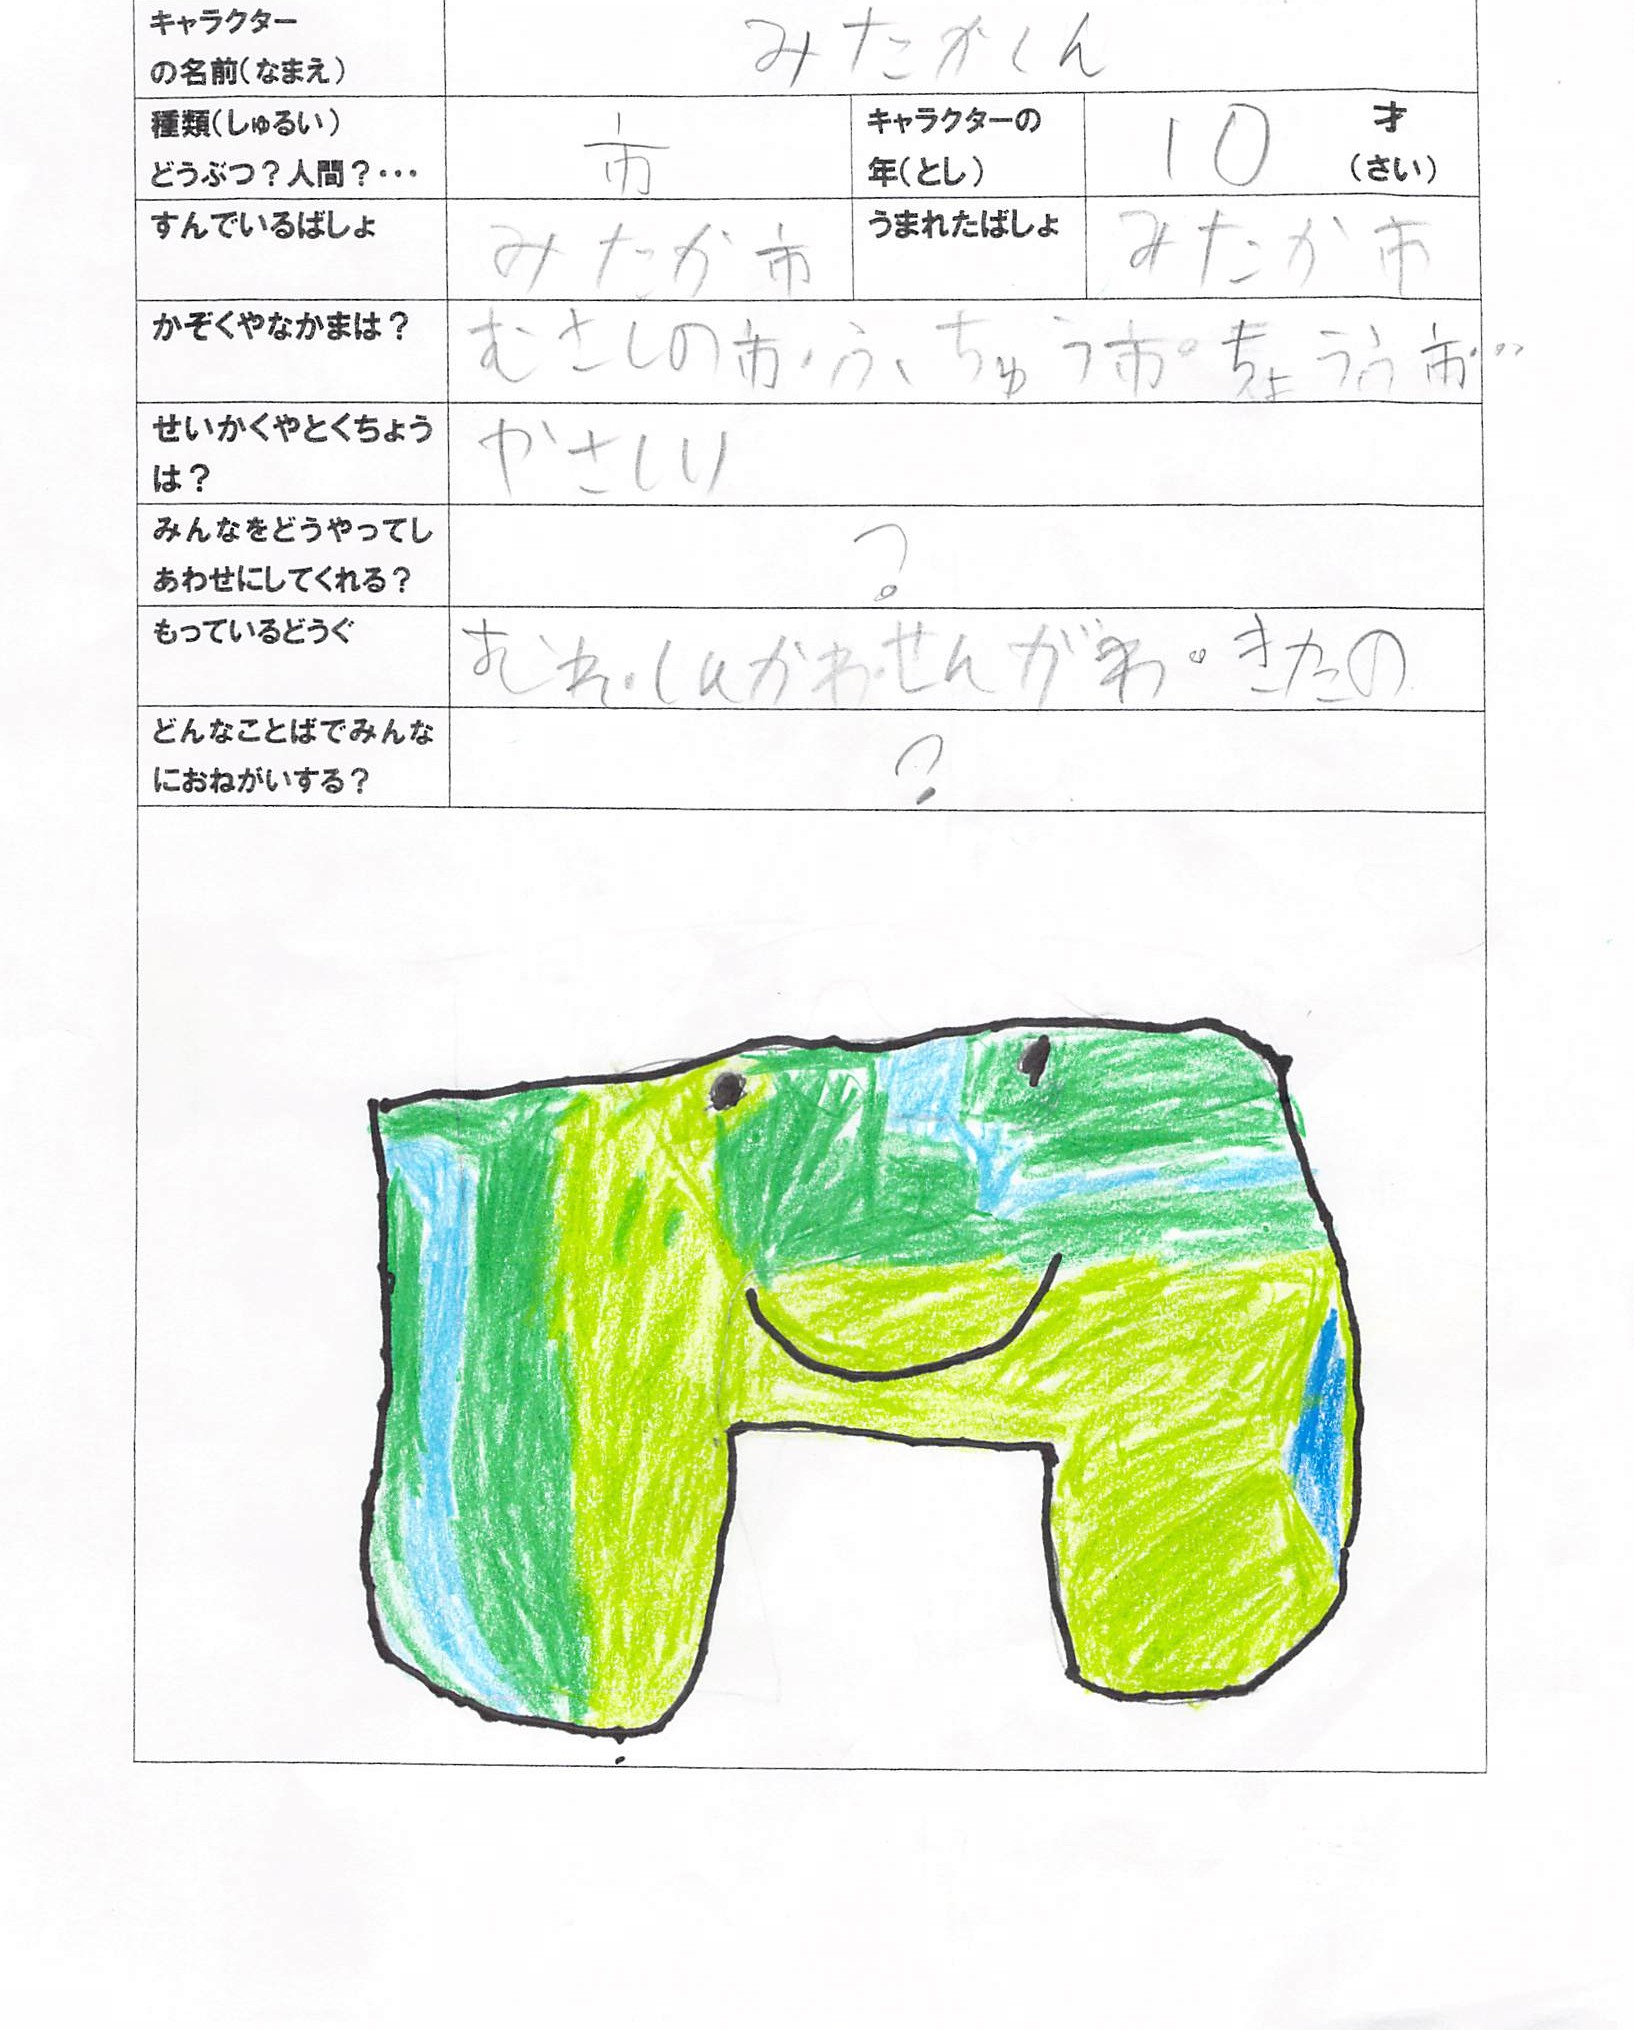 キャラクター
の名前(なまえ)
みたかくん
種類(しゅるい)
どうぶつ?人間?・・・
市
キャラクターの
年(とし)
10
才
(さい)
すんでいるばしょ
みたか市
うまれたばしょ
みたか市
かぞくやなかまは?
むさしの市・ふちゅう市・ちょうふ市・・・
せいかくやとくちょう
は?
やさしい
みんなをどうやってし
あわせにしてくれる?
?
もっているどうぐ
むれ・しんかわ・せんがわ・きたの
どんなことばでみんな
におねがいする?
?